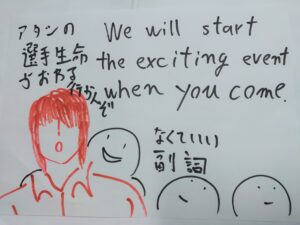 アタシの
選手生命
がおわる
行かんぞ
We will start
the exciting event
when you come.
なくていい
副詞